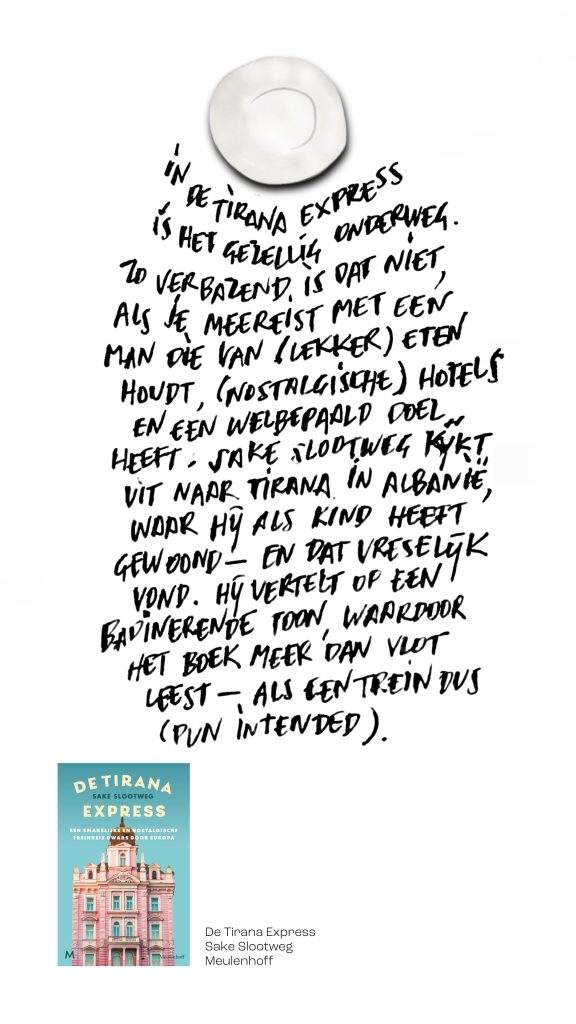 iN
DE TiRANA EXPRESS
iS HET GEZELLiG ONDERWEG.
ZO VERBAZEND iS DAT NiET,
ALS JE MEEREiST MET EEN
MAN DiE VAN (LEKKER) ETEN
HOUDT, (NOSTALGiSCHE) HOTELS
EN EEN WELBEPAALD DOEL
HEEFT. SAKE SLOOTWEG KIJKT
UiT NAAR TiRANA iN ALBANiË,
WAAR HIJ ALS KIND HEEFT
GEWOOND — EN DAT VRESELIJK
VOND. HIJ VERTELT OP EEN
BADiNERENDE TOON, WAARDOOR
HET BOEK MEER DAN VLOT
LEEST — ALS EEN TREiN DUS
(PUN iNTENDED).
DE TIRANA
SAKE SLOOTWEG
EXPRESS
EEN SMAKELIJKE EN NOSTALGISCHE
TREINREIS DWARS DOOR EUROPA
M Meulenhoff
De Tirana Express
Sake Slootweg
Meulenhoff